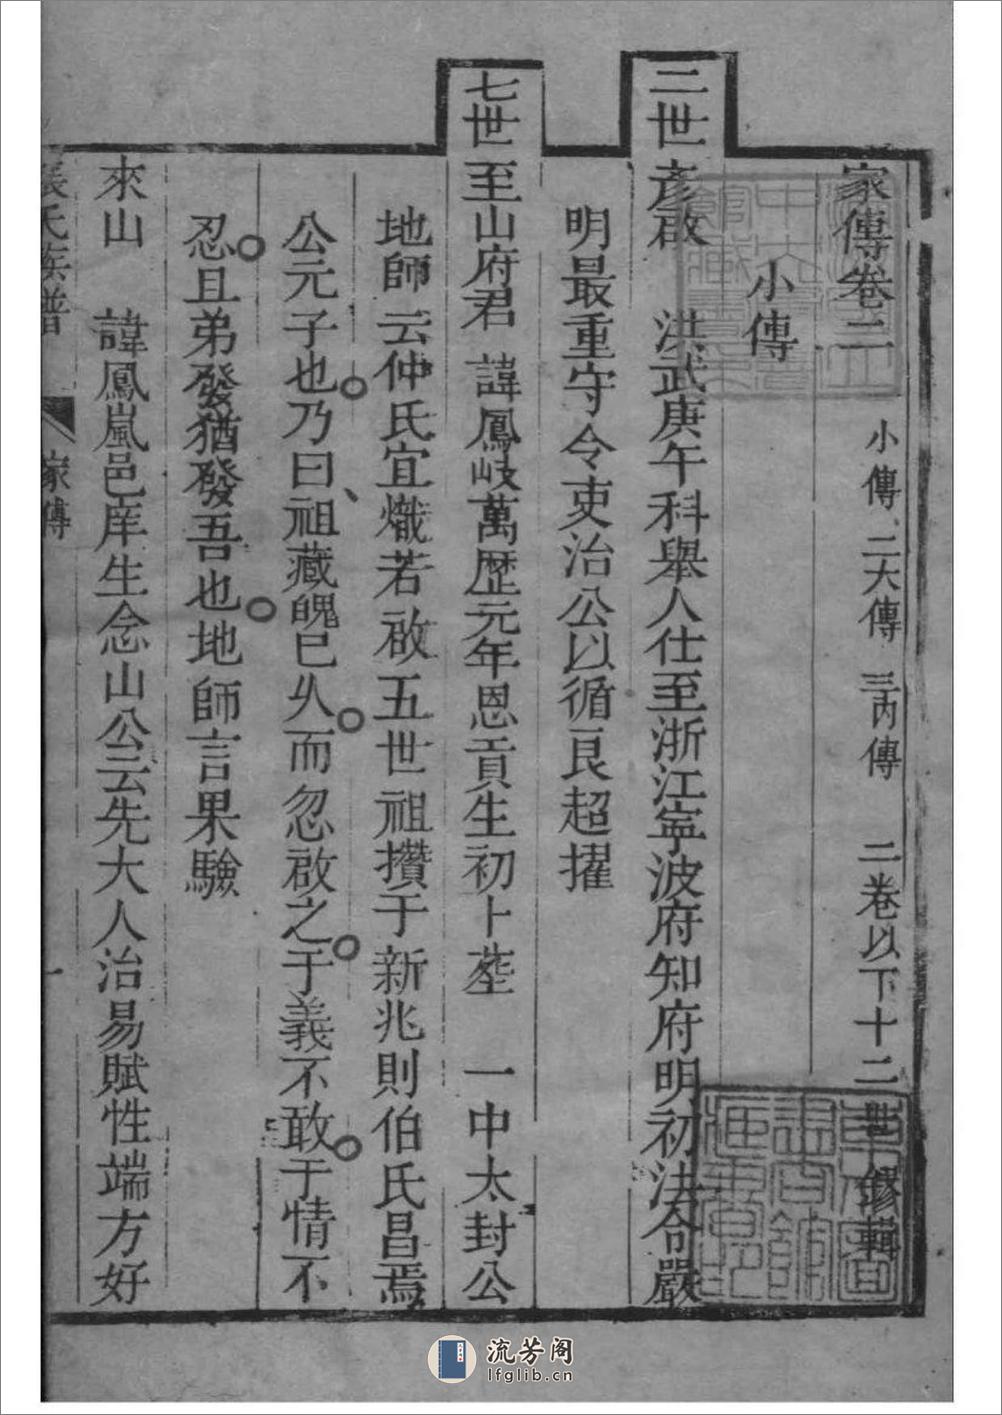 家傳卷二　小傳　二大傳　三內傳　二卷以下十二世　鏐輯
小傳
二世彥啟　洪武庚午科舉人仕至浙江寧波府知府明初法令嚴
明最重守令吏治公以循良超擢
七世至山府君　諱鳳岐萬歷元年恩貢生初卜塟　一中太封公
地師云仲氏宜熾若啟五世祖攢于新兆則伯氏昌焉
公元子也乃曰祖藏魄已久而忽啟之于義不敢于情不
忍且弟發猶發吾也地師言果驗
來山　諱鳳嵐邑庠生念山公云先大人治易賦性端方好
張氏族譜　家傳　一
流芳阁
lfglib.cn